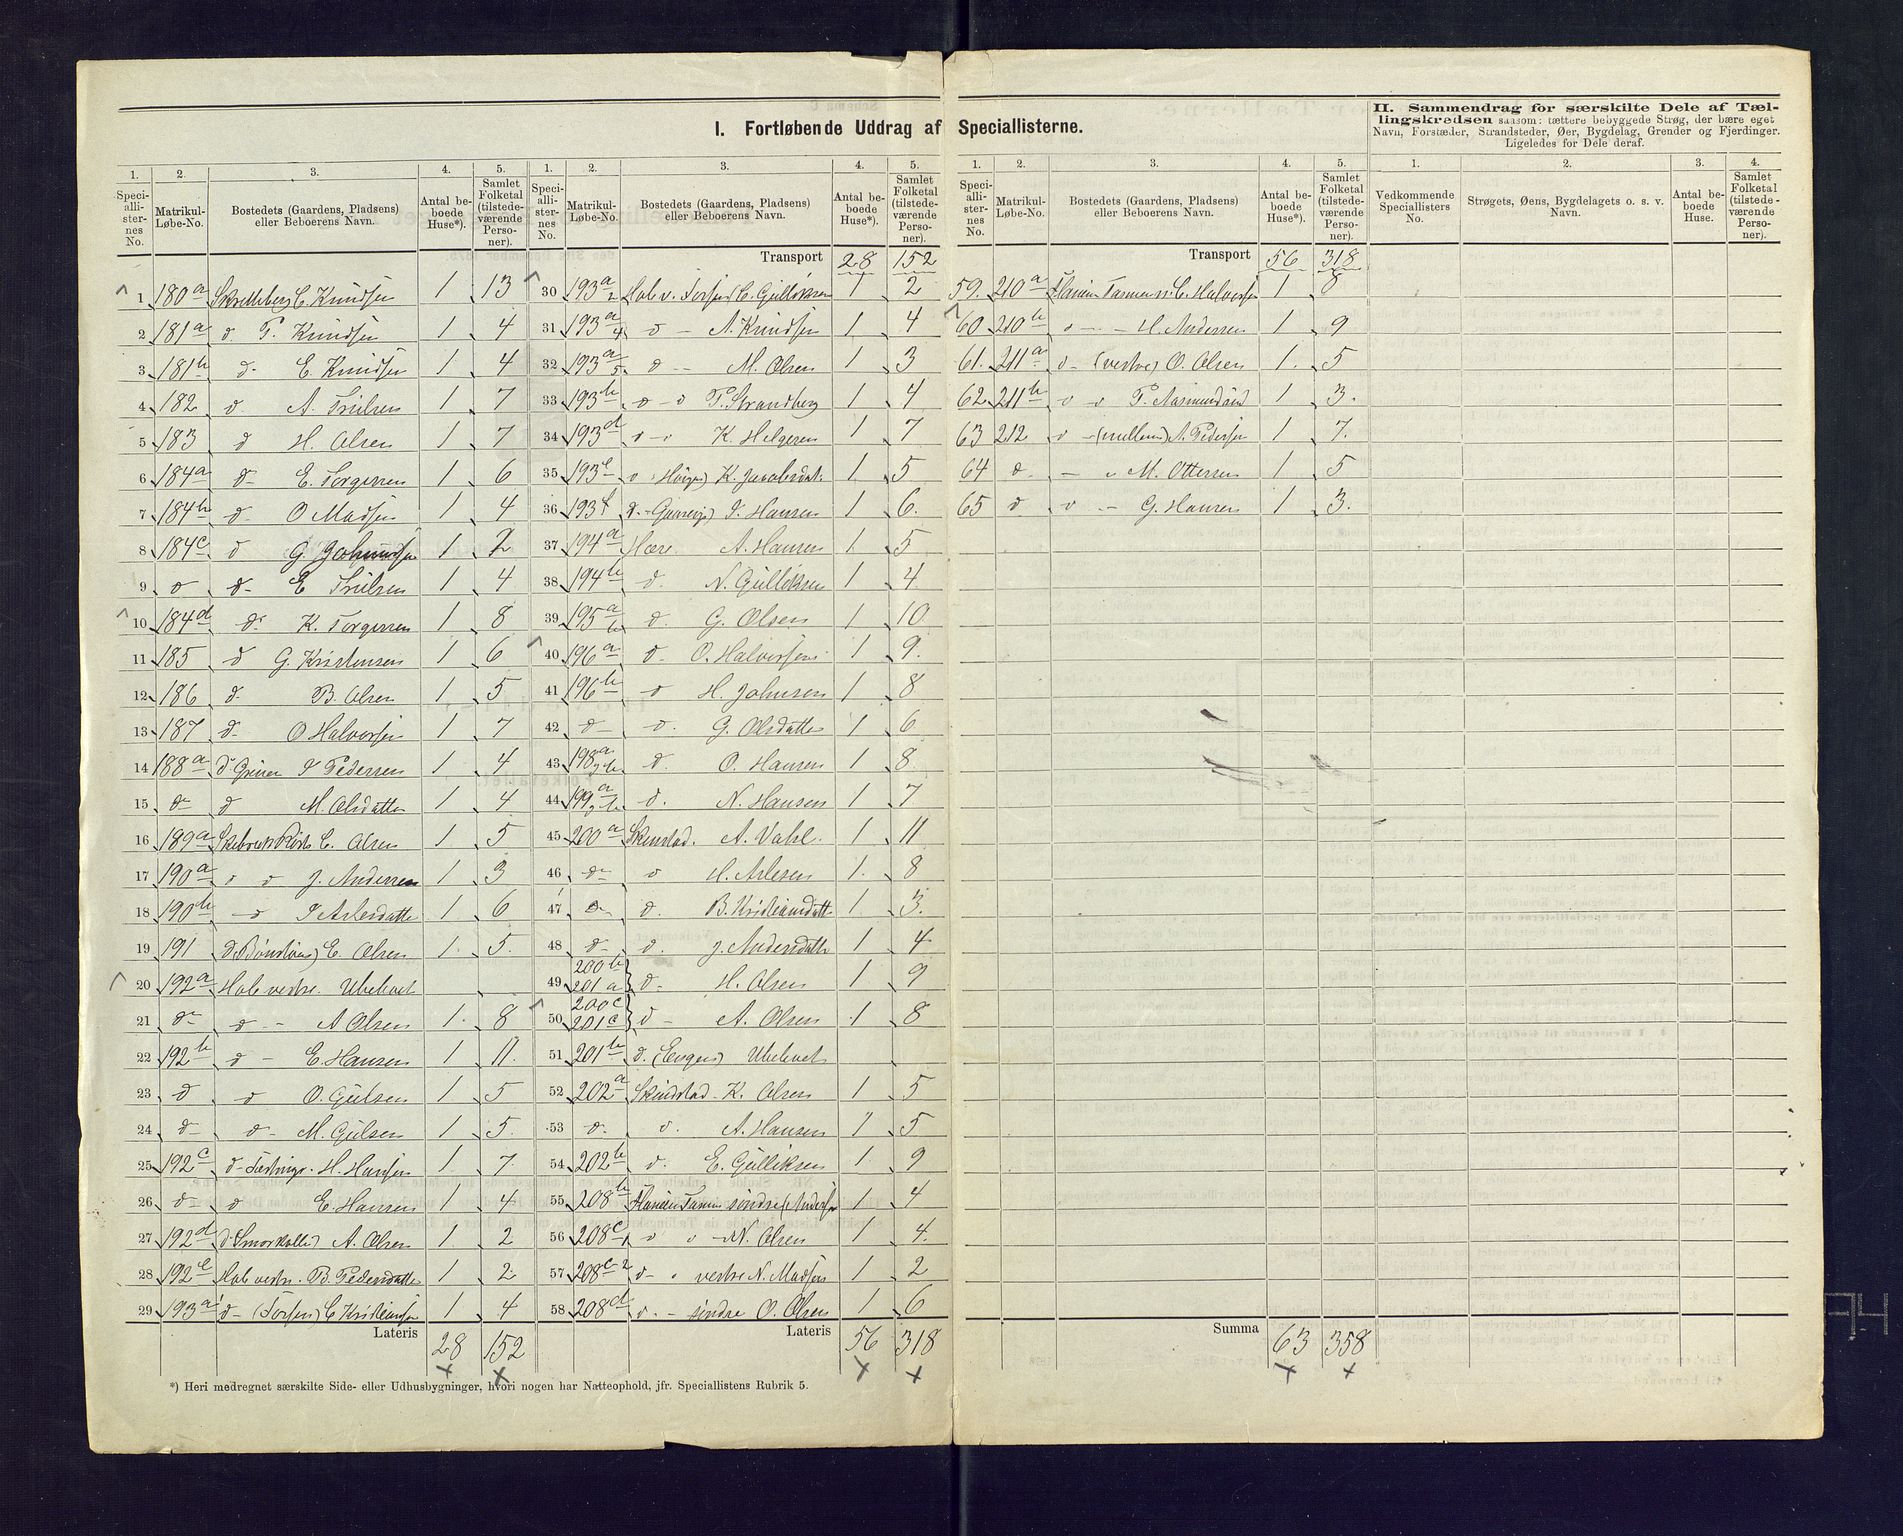 I. Fortløbende Uddrag af Speciallisterne.
II. Sammendrag for særskilte Dele af Tællingskredsen saasom: tættere bebyggede Strøg, der bære eget Navn, Forstæder, Strandsteder, Øer, Bygdelag, Grender og Fjerdinger. Ligeledes for Dele deraf.
1. 2. 3. 4. 5.
Speciallisternes No. Matrikul-Løbe-No. Bostedets (Gaardens, Pladsens) eller Beboerens Navn. Antal beboede Huse*). Samlet Folketal (tilstedeværende Personer).
1 180a C. Knudsen 1 13
2 181a d T. Knudsen 1 4
3 181b d- E. Knudsen 1 4
4 182 d A. Trulsen 1 7
5 183 d H. Olsen 1 7
6 184a d- E. Torgersen 1 6
7 184b d- O Madsen 1 4
8 184c d G. 1 2
9 d d- E Trulsen 1 4
10 184d d- K. Torgersen 1 8
11 185 d G. Kristensen 1 6
12 186 d- B. Olsen 1 5
13 187 d- O Halvorsen 1 7
14 188a d Pedersen 1 4
15 d- d M. Olsdatter 1 4
16 189a C. Olsen 1 5
17 190a d d J. Andersen 1 3
18 190b -d Arlesdatter 1 6
19 191 d E. Olsen 1 5
20 192a Hob vestre. Ubeboet
21 d- d- A Olsen 1 8
22 192b d - E Hansen 1 11
23 d d O. Gulsen 1 5
24 d- d- M. Gulsen 1 5
25 192c d- H. Hansen 1 7
26 d- d E. Hansen 1 4
27 192d d A. Olsen 1 2
28 192e Hob vestre. B. Pedersdatter 1 2
29 193a1 d- C Kristiansen 1 4
Lateris 28 152
1. 2. 3. 4. 5.
Speciallisternes No. Matrikul-Løbe-No. Bostedets (Gaardens, Pladsens) eller Beboerens Navn. Antal beboede Huse*). Samlet Folketal (tilstedeværende Personer).
Transport 28 152
30 193a2 Hob v. C. Gulliksen 1 2
31 193a4 d - A. Knudsen 1 4
32 193a5 d - M. Olsen 1 3
33 193b d - d T. Strandberg 1 4
34 193d d - d K. Helgesen 1 7
35 193e d K. Jacobsdat. 1 5
36 193f d - Hansen 1 6
37 194a A. Hansen 1 5
38 194b d. N. Gulliksen 1 4
39 195a b d. G. Olsen 1 10
40 196a d- O. Halvorsen 1 9
41 196b d H. Johnsen 1 8
42 d- d. G. Olsdatter 1 6
43 198a b d. O. Hansen 1 8
44 199a b d. N. Hansen 1 7
45 200a A. Vahl. 1 11
46 d- d H. Arlesen 1 8
47 d- d. B. Kristiansdatt 1 3
48 d- d. J. Andersdatter 1 4
49 200b 201a d- H. Olsen 1 9
50 200c 201c d - A. Olsen 1 8
51 201b d. Ubeboet
52 202a Skinstad - K. Olsen 1 5
53 d. d. A. Hansen 1 5
54 202b d. E. Gulliksen 1 9
55 208b søndre 1 4
56 208c1 d d - N. Olsen 1 4
57 208c2 d- vestre N. Madsen 1 2
58 208d d. - søndre O. Olsen 1 6
Lateris 56 318
1. 2. 3. 4. 5.
Speciallisternes No. Matrikul-Løbe-No. Bostedets (Gaardens, Pladsens) eller Beboerens Navn. Antal beboede Huse*). Samlet Folketal (tilstedeværende Personer).
Transport 56 318
59. 210a C. Halvorsen 1 8
60 210b d - - H. Andersen 1 9
61. 211a d - (vestre) O. Olsen 1 5
62 211b d d T. 1 3
63 212 d - (mellem) A. Pedersen 1 7
64 d - M. Ottersen 1 5
65 d d - G. Hansen 1 3
Summa 63 358
1. 2. 3. 4.
Vedkommende Speciallisters No. Strøgets, Øens, Bygdelagets o. s. v. Navn. Antal beboede Huse. Samlet Folketal (tilstedeværende Personer).
*) Heri medregnet særskilte Side- eller Udhusbygninger, hvori nogen har Natteophold, jfr. Speciallistens Rubrik 5.